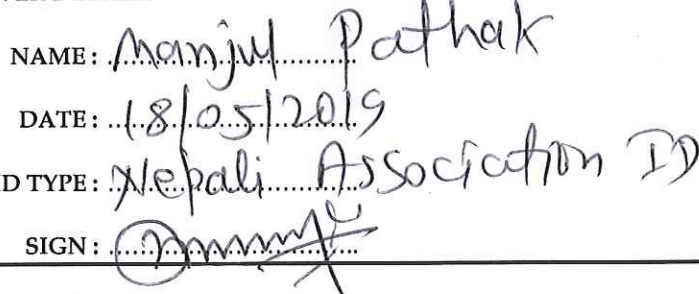 NAME: Manjul Pathak
DATE: 18/05/2019
ID TYPE: Nepali Association ID
SIGN: